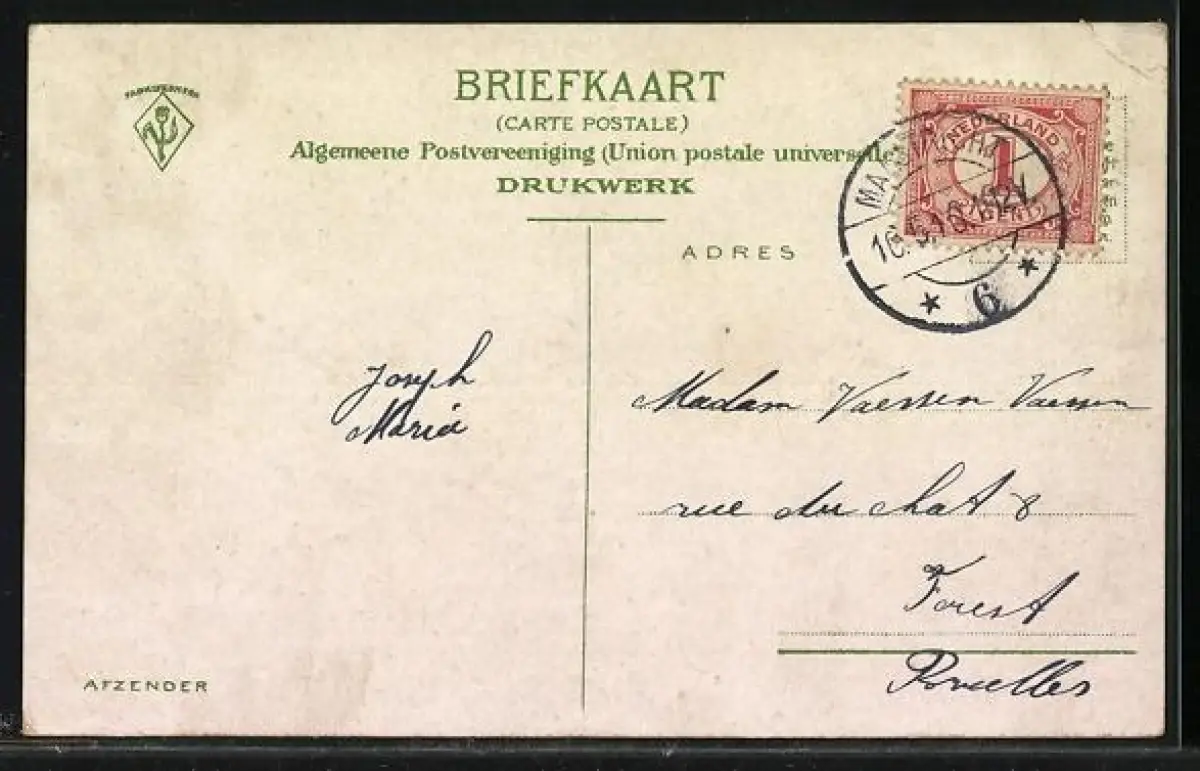 BRIEFKAART
(CARTE POSTALE)
Algemeene Postvereeniging (Union postale universelle
DRUKWERK
ADRES
NEDERLAND
1
CENT
6
Joseph
Maria
Madam Vaessen Vaessen
rue du chat 8
Forest
Bruxelles
AFZENDER